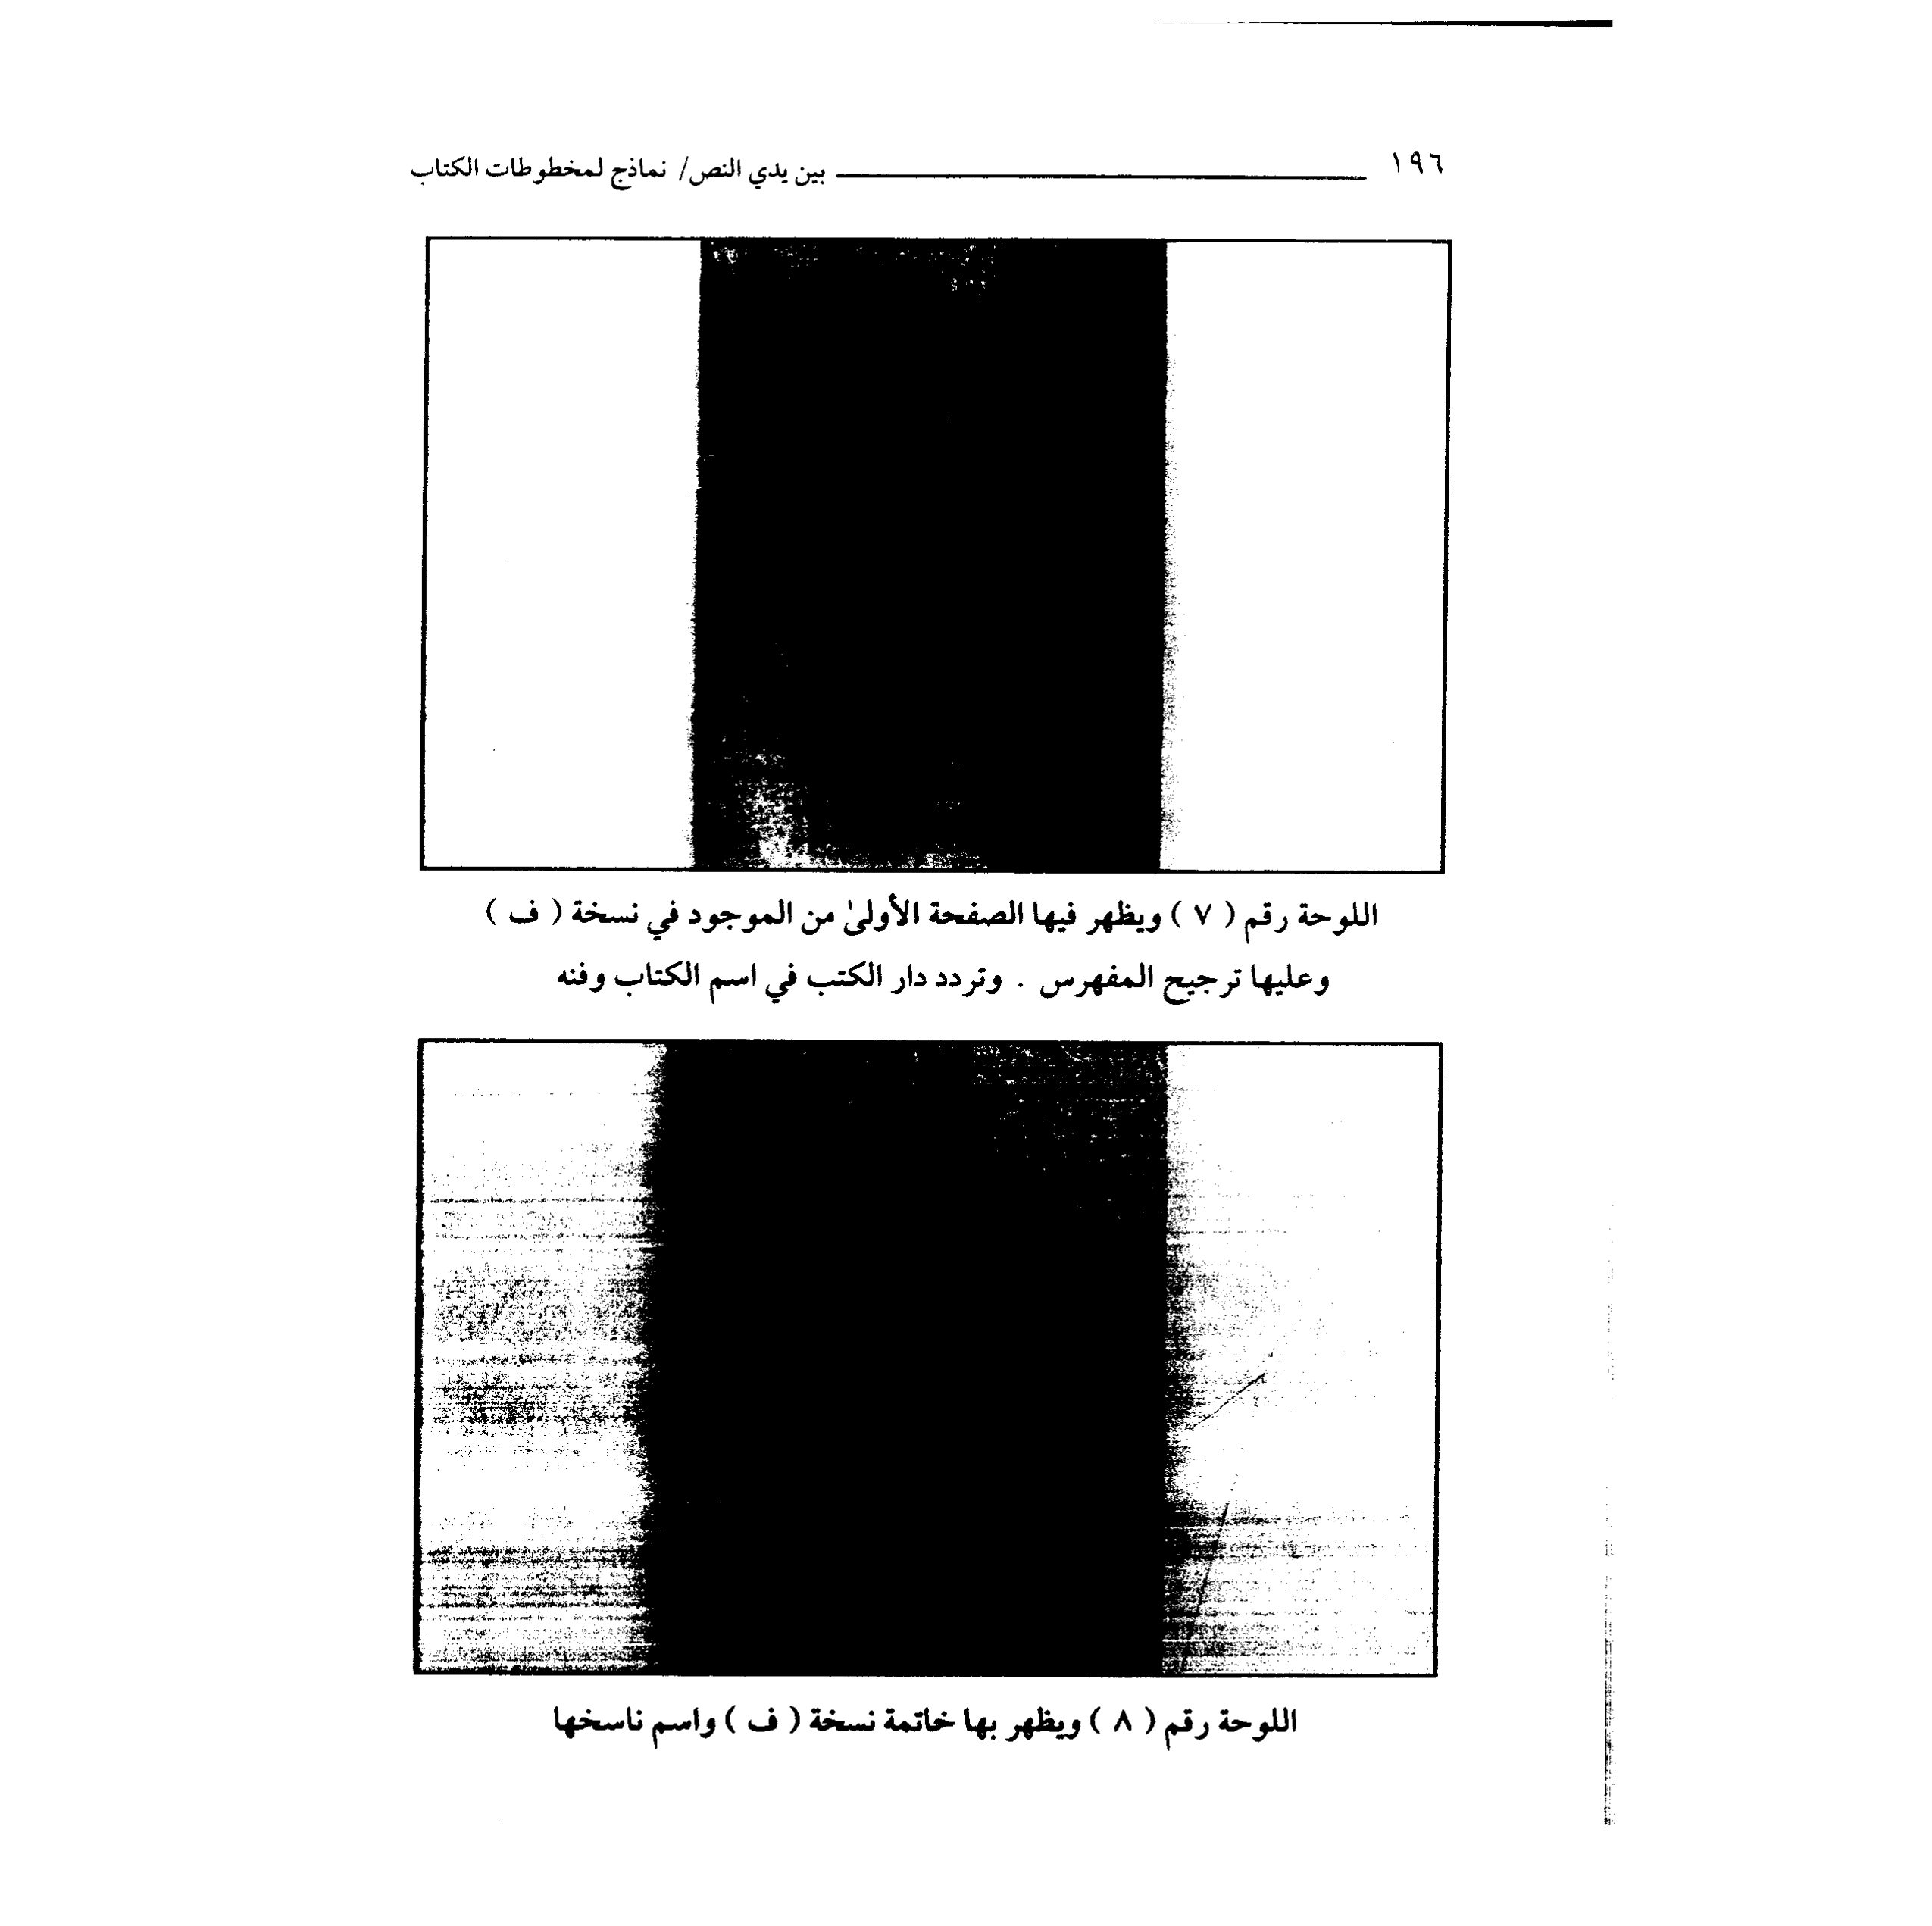 ١٩٦ بين يدي النص/ نماذج لمخطوطات الكتاب
اللوحة رقم ( ٧ ) ويظهر فيها الصفحة الأولىٰ من الموجود في نسخة ( ف )
وعليها ترجيح المفهرس . وتردد دار الكتب في اسم الكتاب وفنه
اللوحة رقم ( ٨ ) ويظهر بها خاتمة نسخة ( ف ) واسم ناسخها